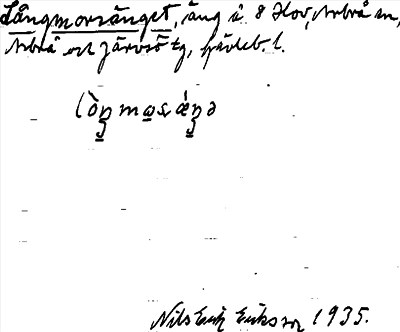 Långmorsänget, äng i 8 Hov, Arbrå sn,
Arbrå och Järvsö tg, Gävleb. l.
lòŋmɷsæ̀ŋə
Nils Erik Eriksson 1935.